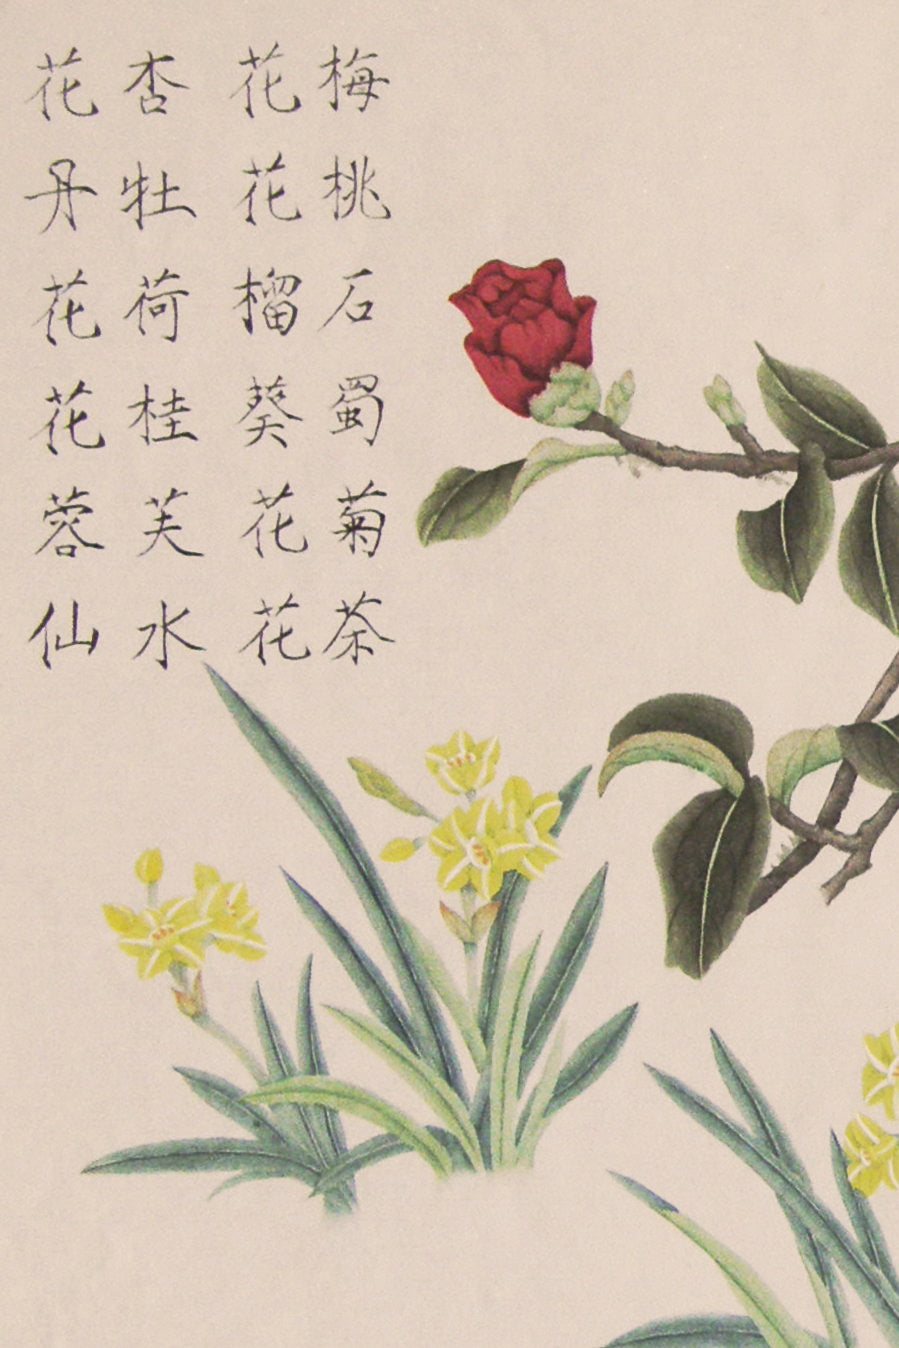 梅花杏花
桃花牡丹
石榴荷花
蜀葵桂花
菊花芙蓉
茶花水仙